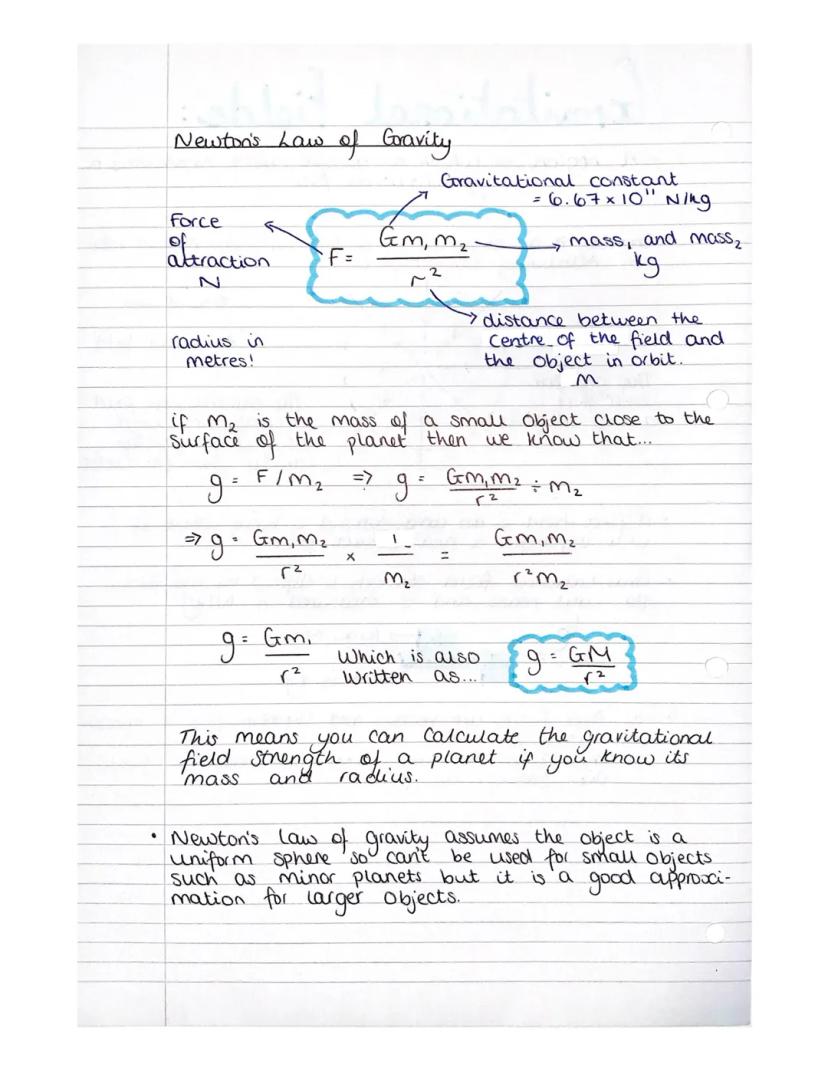 Newton's Law of Gravity
Gravitational constant
= 6.67 × 10¹¹ N/kg
Force
of
attraction
N
F = Gm₁m₂ / r²
mass₁ and mass₂
kg
distance between the
centre of the field and
the object in orbit.
m
radius in
metres!
if m₂ is the mass of a small object close to the
surface of the planet then we know that...
g = F/m₂ ⇒ g = Gm₁m₂ / r² ÷ m₂
⇒ g = Gm₁m₂ / r² × 1 / m₂ = Gm₁m₂ / r²m₂
g = Gm₁ / r² Which is also
written as...
g = GM / r²
This means you can calculate the gravitational
field strength of a planet if you know its
mass and radius.
• Newton's law of gravity assumes the object is a
uniform sphere so can't be used for small objects
such as minor planets but it is a good approxi-
mation for larger objects.